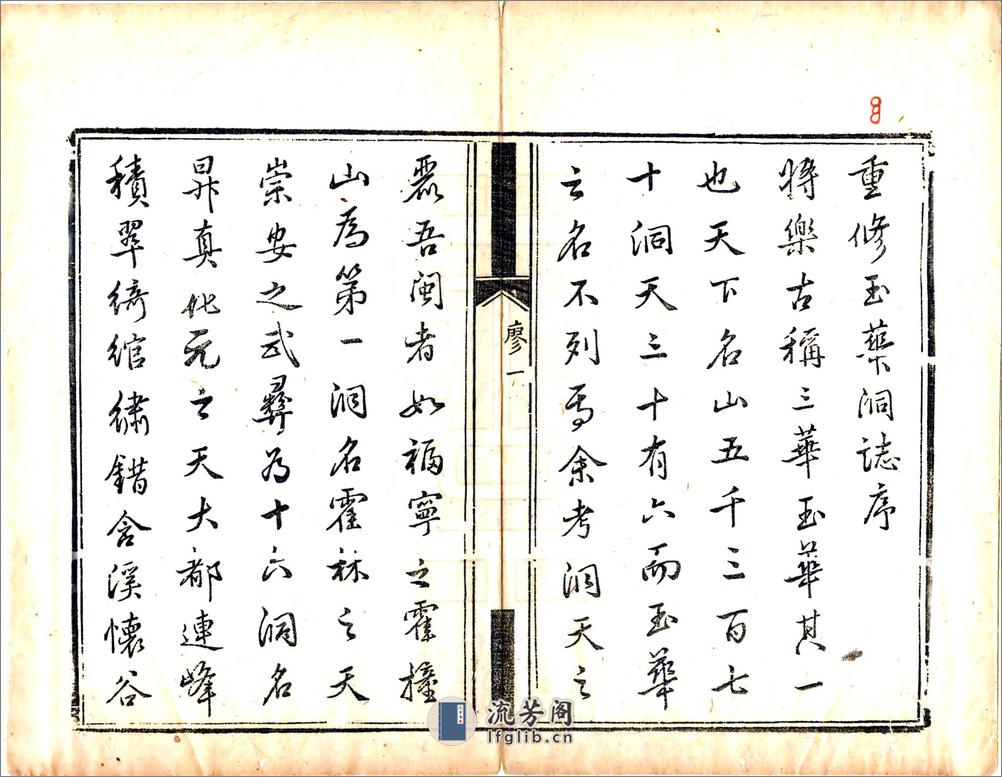 8
重修玉華洞誌序
將樂古稱三華玉華其一
也天下名山五千三百七
十洞天三十有六而玉華
之名不列焉余考洞天之
廖一
麗吾閩者如福寧之霍撞
山為第一洞名霍林之天
崇安之武彝為十六洞名
昇真化元之天大都連峰
積翠綺綰繡錯含溪懷谷
流芳阁
lfglib.cn